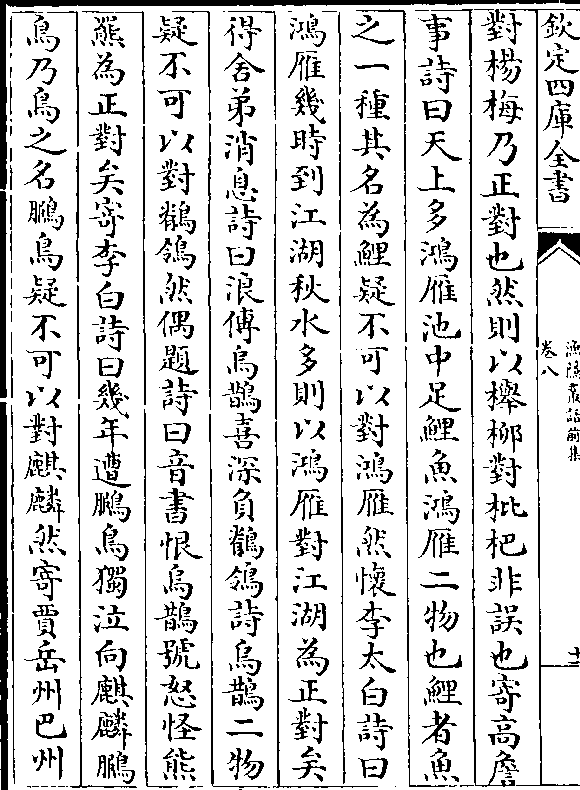 欽定四庫全書
漁隱叢話前集
卷八
十二
對楊梅乃正對也然則以櫸柳對枇杷非誤也寄高詹
事詩曰天上多鴻雁池中足鯉魚鴻雁二物也鯉者魚
之一種其名為鯉疑不可以對鴻雁然懷李太白詩曰
鴻雁幾時到江湖秋水多則以鴻雁對江湖為正對矣
得舍弟消息詩曰浪傳烏鵲喜深負鶺鴒詩烏鵲二物
疑不可以對鶺鴒然偶題詩曰音書恨烏鵲號怒怪熊
羆為正對矣寄李白詩曰幾年遭鵩鳥獨泣向麒麟鵩
鳥乃鳥之名鵩鳥疑不可以對麒麟然寄賈岳州巴州